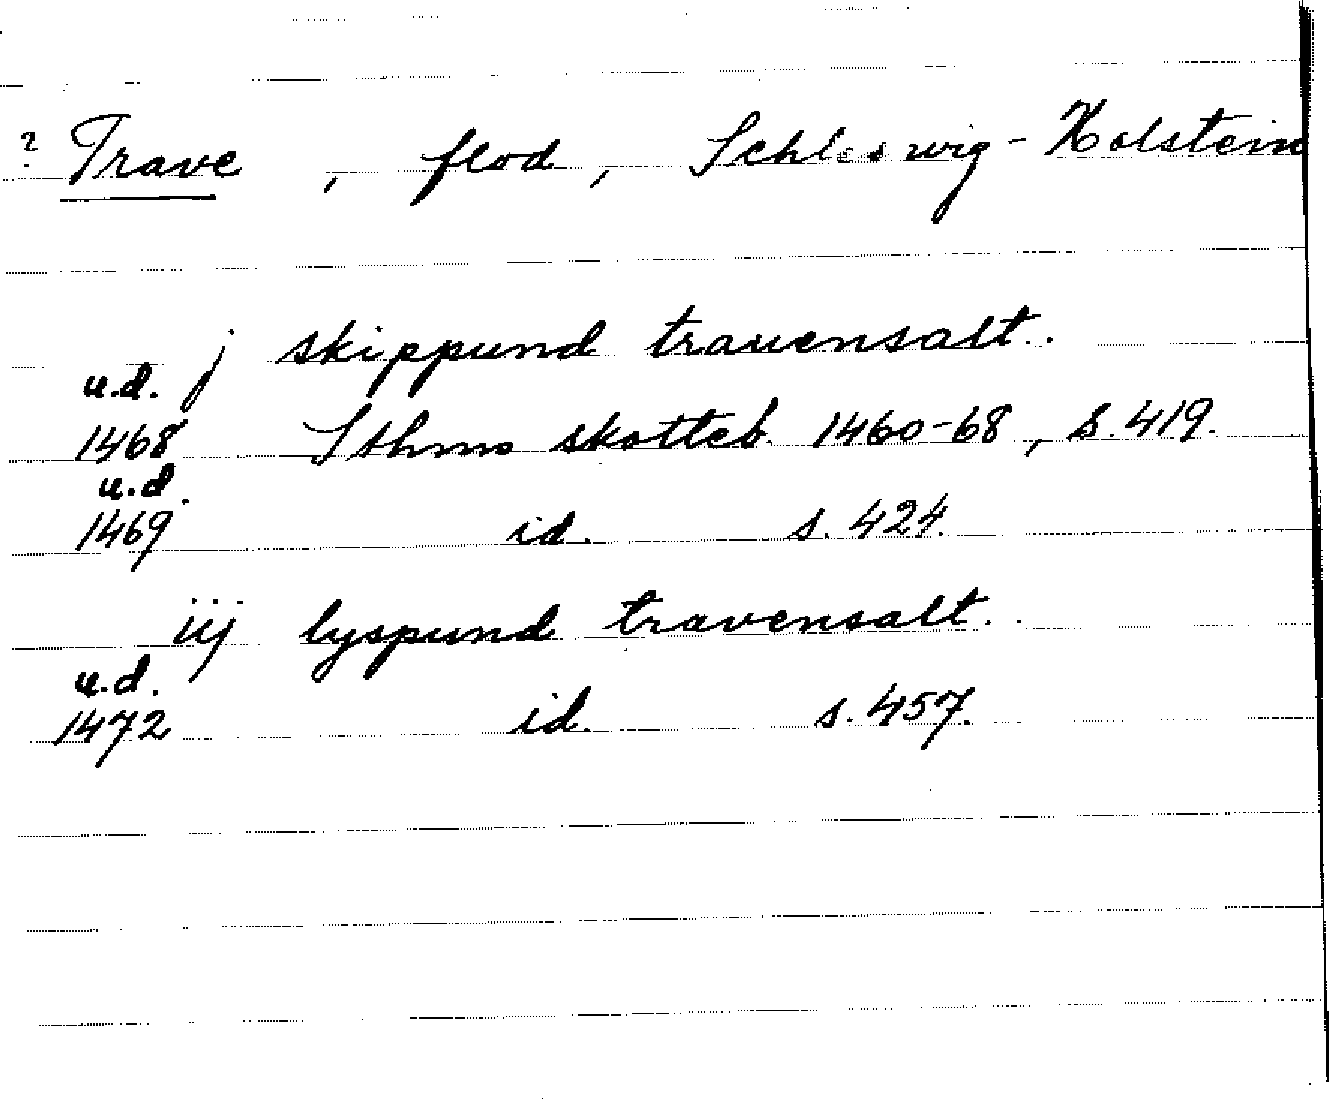 ? Trave , flod , Schleswig-Holstein
j skippund trauensalt.
u.d.
1468 Sthms skotteb. 1460-68, s. 419.
u.d.
1469 id. s. 424.
iij lyspund travensalt.
u.d.
1472 id. s. 457.